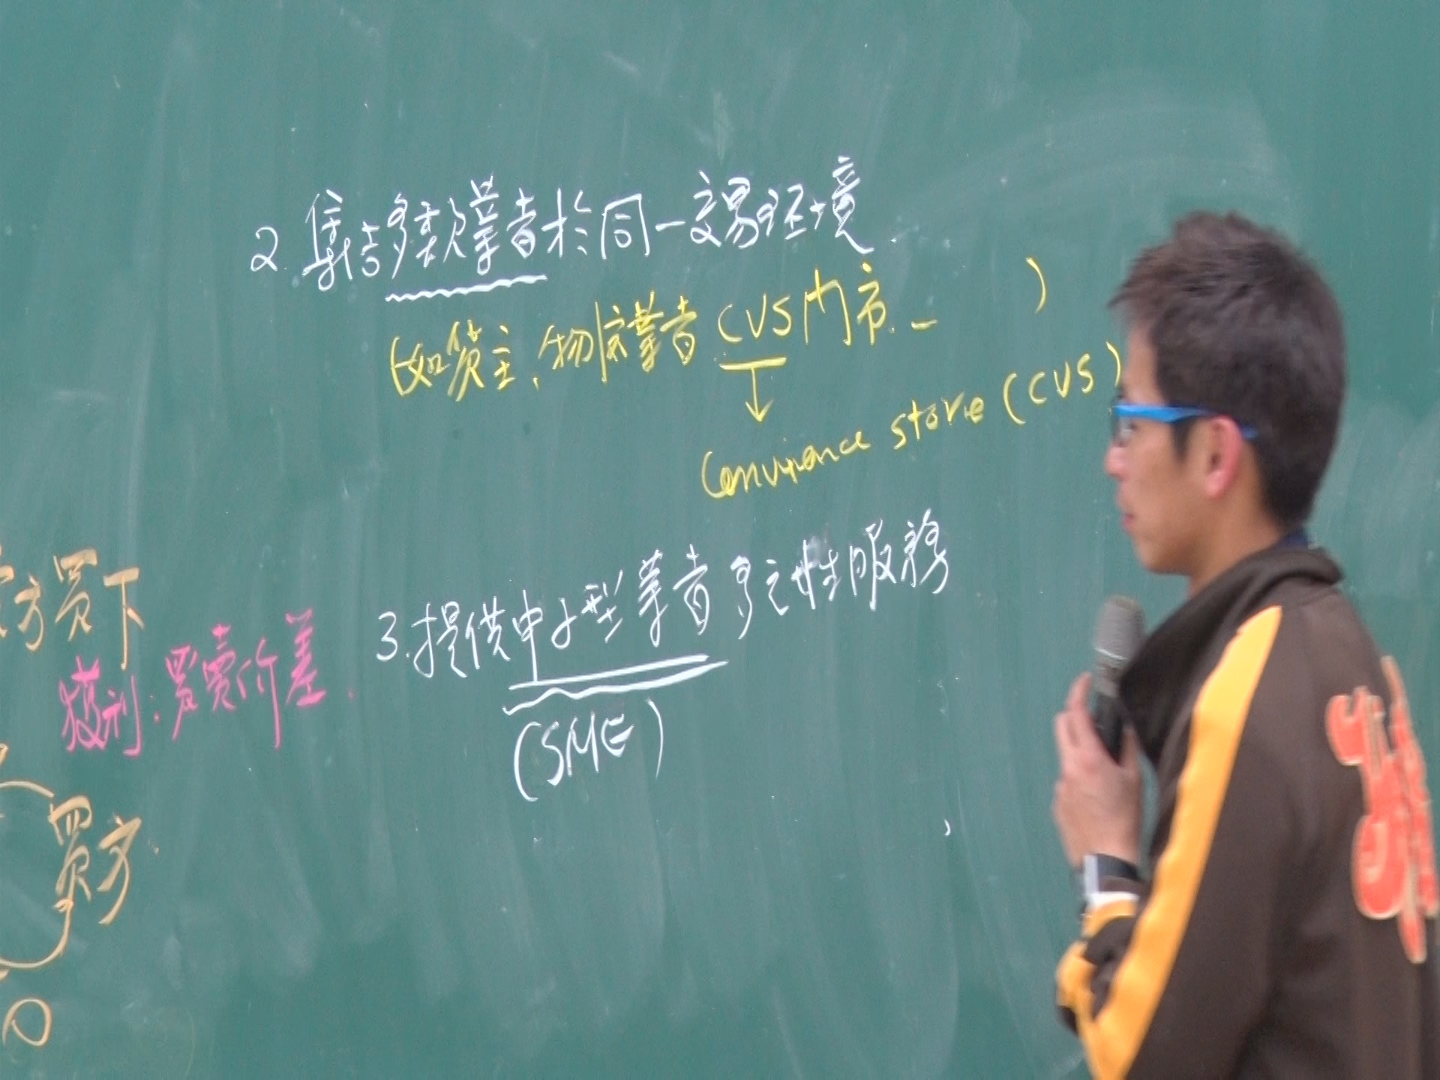 2. 集结多类業者於同一交易环境
(如貨主、物流業者 CVS門市 –   )
Convinence store (CVS)
3. 提供中小型業者多元性服務
(SME)
方買下
獲利: 買賣价差.
買方